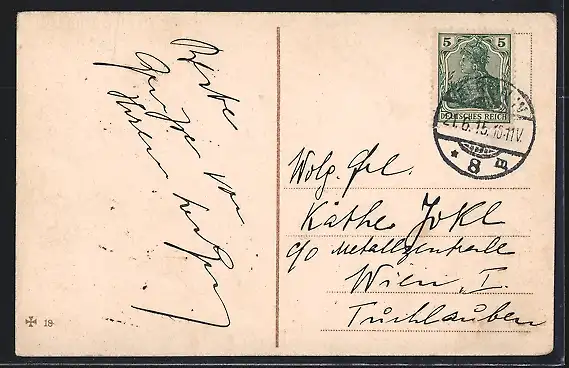 Beste
Grüsse von
5
5
DEUTSCHES REICH
21.6.15.10-11V.
* 8 m
Wolg. Frl.
Käthe Jokl
c/o Metallzentrale
Wien, I.
Tuchlauben
18